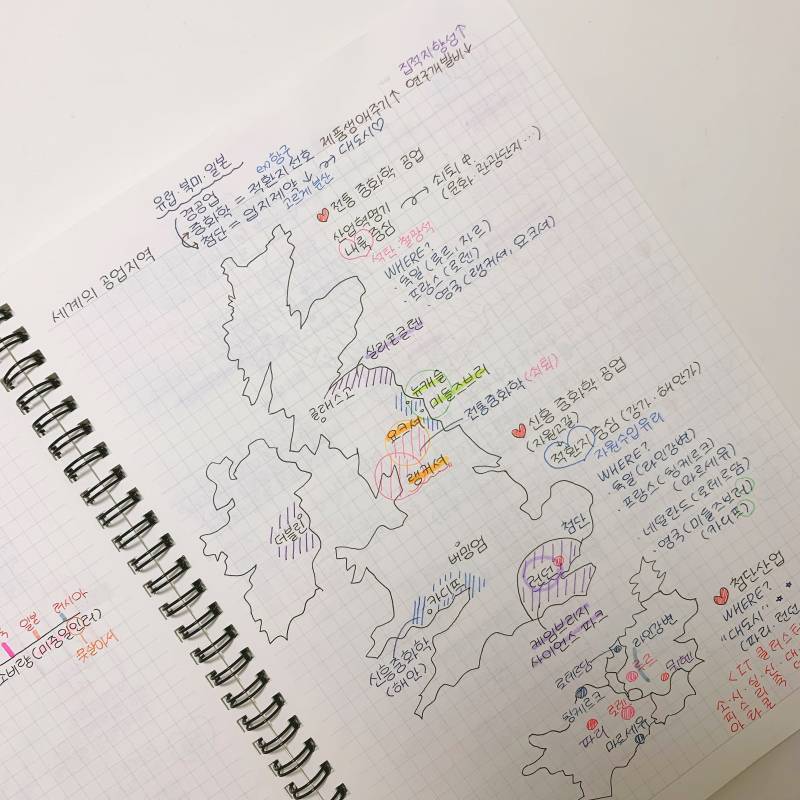 세계의 공업지역
유럽·북미·일본
경공업
중화학 = 적환지 선호
ex)항구
첨단 = 입지제약↓ → 대도시♡
고르게 분산
제품생애주기↑ 연구개발비↓
집적지향성↑
♥ 전통 중화학 공업
산업혁명기 → 쇠퇴 中
내륙 중심 (문화·관광단지...)
석탄·철광석
WHERE?
·독일 (루르, 자르)
·프랑스 (로렌)
·영국 (랭커셔, 요크셔)
실리콘글렌
글래스고
뉴캐슬
미들즈브러
전통중화학 (쇠퇴)
요크셔
랭커셔
더블린
버밍엄
카디프
신흥중화학
(해안)
첨단
런던
케임브리지
사이언스 파크
♥ 신흥 중화학 공업
(자원고갈)
적환지 중심 (강가·해안가)
자원수입유리
WHERE?
·독일 (라인강변)
·프랑스 (됭케르크)
(마르세유)
·네덜란드 (로테르담)
·영국 (미들즈브러)
(카디프)
♥ 첨단산업
WHERE?
"대도시"
(파리, 런던
<IT 클러스터
라인강변
로테르담
루르
됭케르크
로렌
파리
마르세유
일본
러시아
소비량 (미중일인러)